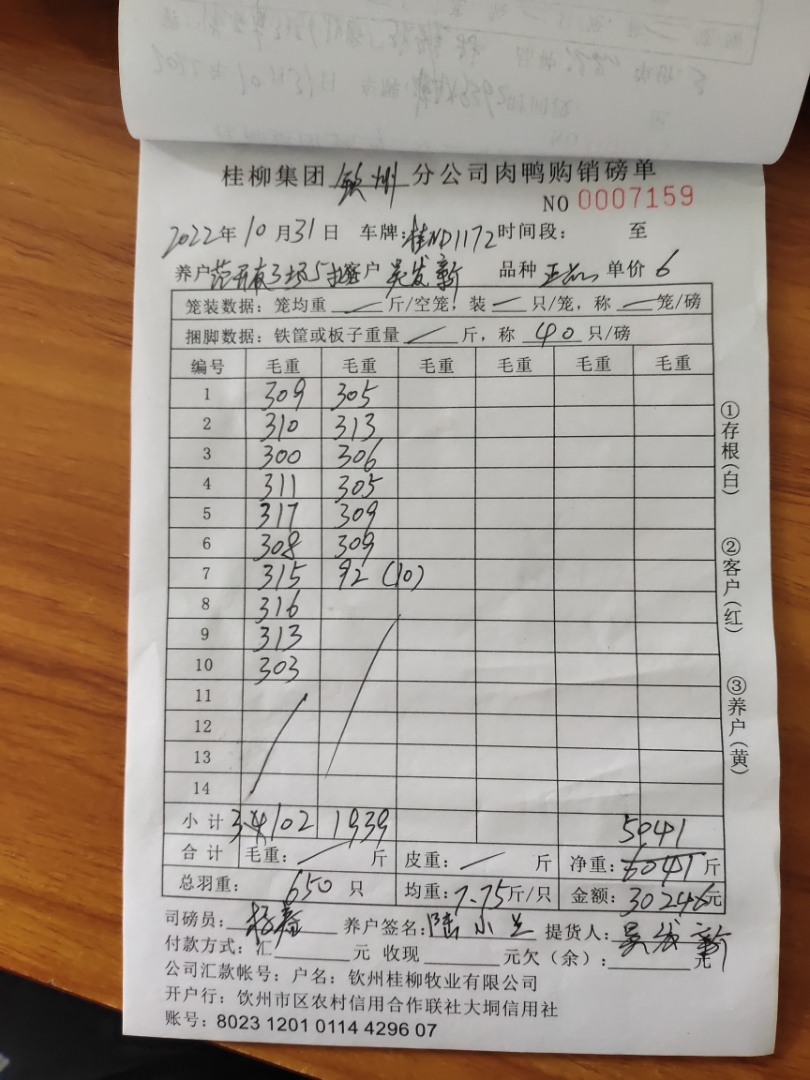 桂柳集团 钦州 分公司肉鸭购销磅单
NO 0007159
2022年10月31日 车牌:桂ND1172 时间段: 至
养户 范开有3场5批 客户 吴发新 品种 单价 6
笼装数据:笼均重 斤/空笼,装 只/笼,称 笼/磅
捆脚数据:铁筐或板子重量 斤,称 40 只/磅
编号 毛重 毛重 毛重 毛重 毛重 毛重
1 309 305
2 310 313
3 300 306
4 311 305
5 317 309
6 308 309
7 315 92 (10)
8 316
9 313
10 303
11
12
13
14
小计 3102 1939 5041
合计 毛重: 斤 皮重: 斤 净重: 6041 斤
总羽重: 650 只 均重: 7.75 斤/只 金额: 30246 元
司磅员: 养户签名: 陆小兰 提货人: 吴发新
付款方式:汇 元 收现 元欠(余): 元
公司汇款帐号:户名:钦州桂柳牧业有限公司
开户行:钦州市区农村信用合作联社大垌信用社
账号:8023 1201 0114 4296 07
①存根(白)
②客户(红)
③养户(黄)